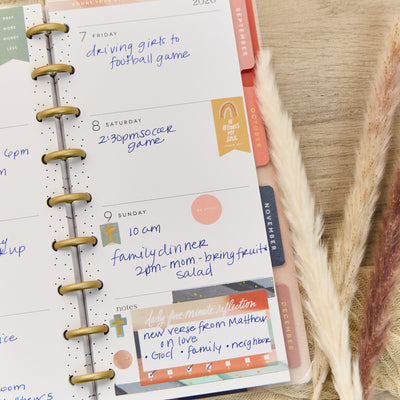 PRAY
MORE
WORRY
LESS
2026
7 FRIDAY
driving girls to
football game
8 SATURDAY
2:30pm soccer
game
6pm
9 SUNDAY
10 am
family dinner
2pm-mom-bring fruit
salad
up
notes
daily five minute reflection
new verse from Matthew
on love
• God • Family • neighbor
ice
room
SEPTEMBER
OCTOBER
NOVEMBER
DECEMBER